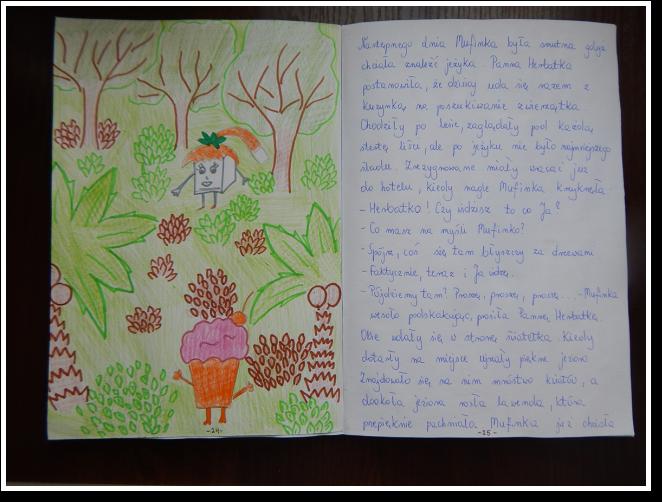 Następnego dnia Mufinka była smutna gdyż
chciała znaleźć jeżyka. Panna Herbatka
postanowiła, że dzisiaj uda się razem z
kuzynką na poszukiwanie zwierzątka.
Chodziły po lesie, zaglądały pod każdą
stertę liści, ale po jeżyku nie było najmniejszego
śladu. Zrezygnowane miały wracać już
do hotelu, kiedy nagle Mufinka krzyknęła
- Herbatko! Czy widzisz to co Ja?
- Co masz na myśli Mufinko?
- Spójrz, coś się tam błyszczy za drzewami
- Faktycznie, teraz i Ja widzę.
- Pójdziemy tam? Proszę, proszę, proszę... - Mufinka
wesoło podskakując, prosiła Pannę Herbatkę.
Obie udały się w stronę światełka. Kiedy
dotarły na miejsce ujrzały piękne jezioro
Znajdowało się na nim mnóstwo kwiatów, a
dookoła jeziora rosła lawenda, która
przepięknie pachniała. Mufinka już chciała
-24-
-25-